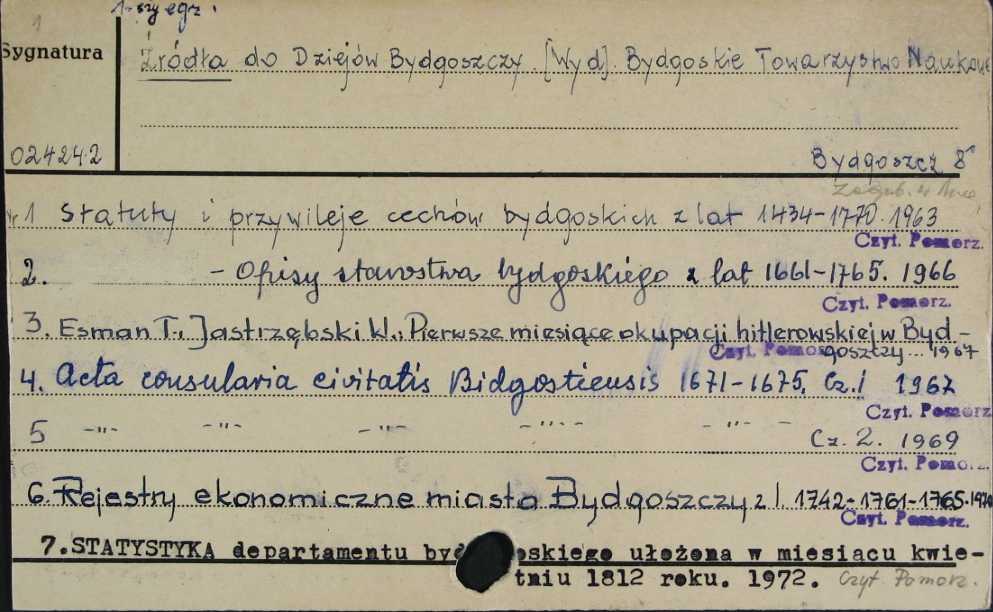 1
1-szy egz.
Sygnatura
Źródła do Dziejów Bydgoszczy. [Wyd]. Bydgoskie Towarzystwo Naukowe
024242
Bydgoszcz 8°
Nr 1 Statuty i przywileje cechów bydgoskich z lat 1434-1770. 1963
Czyt. Pomorz.
2. - Opisy starostwa bydgoskiego z lat 1661-1765. 1966
Czyt. Pomorz.
3. Esman T., Jastrzębski W.: Pierwsze miesiące okupacji hitlerowskiej w Byd-
goszczy... 1967
Czyt. Pomorz.
4. Acta consularia civitatis Bidgostiensis 1671-1675, Cz. 1 1967
Czyt. Pomorz
5 -"- -"- -"- -"- -"- Cz. 2. 1969
Czyt. Pomorz.
6. Rejestry ekonomiczne miasta Bydgoszczy z l. 1742-1761-1765. 1970
Czyt. Pomorz.
7. STATYSTYKA departamentu bydgoskiego ułożona w miesiącu kwie-
tniu 1812 roku. 1972. Czyt Pomorz.